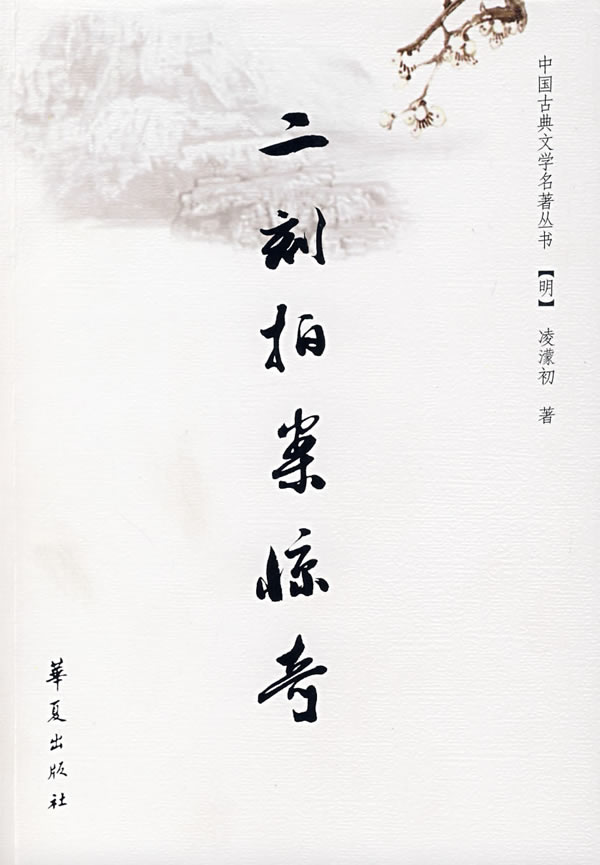 中国古典文学名著丛书 【明】 凌濛初 著
二刻拍案惊奇
華夏出版社